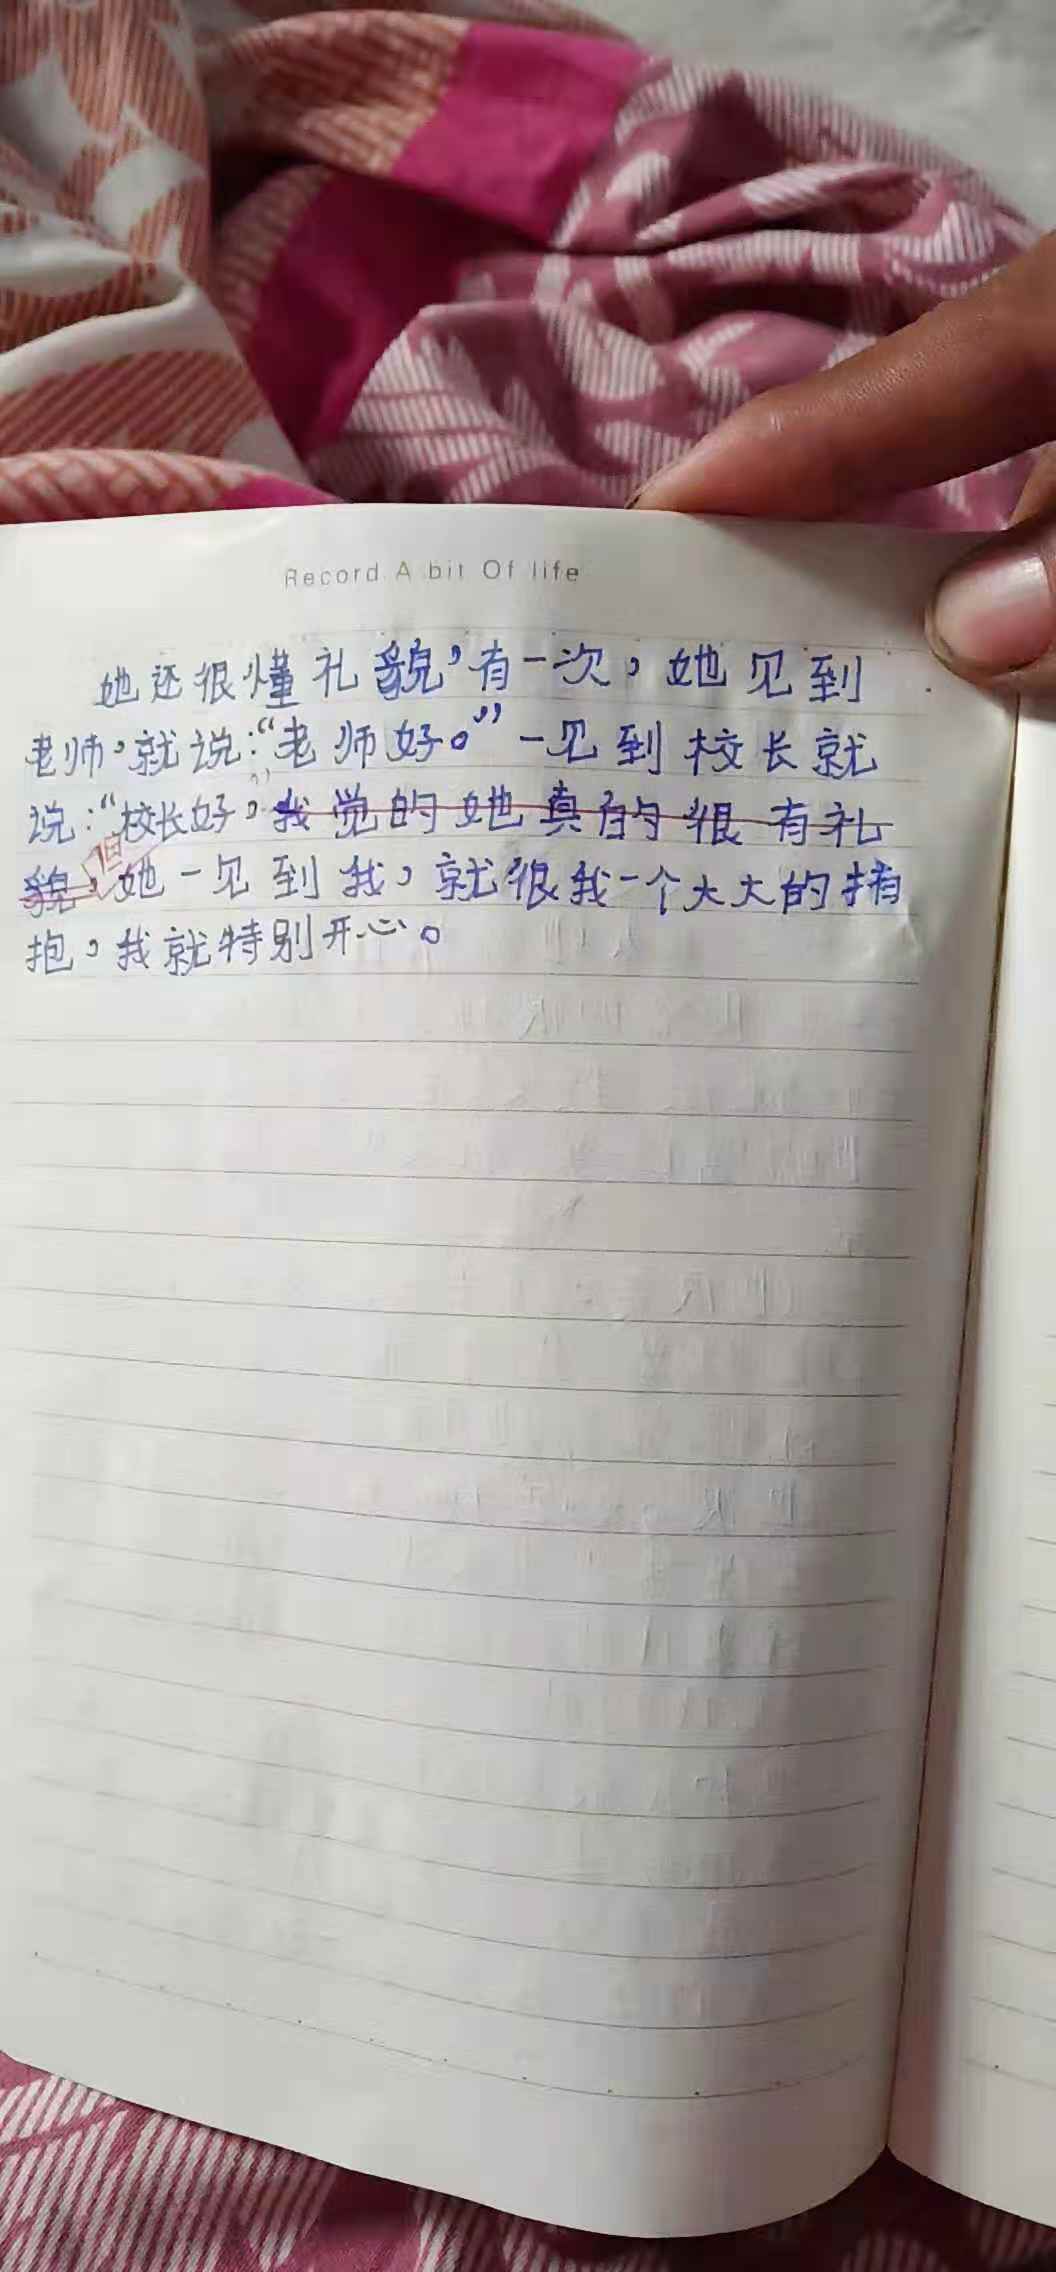 Record A bit Of life
她还很懂礼貌,有一次,她见到
老师,就说:“老师好。”一见到校长就
说:“校长好。”我觉的她真的很有礼
貌,但她一见到我,就很我一个大大的拥
抱,我就特别开心。